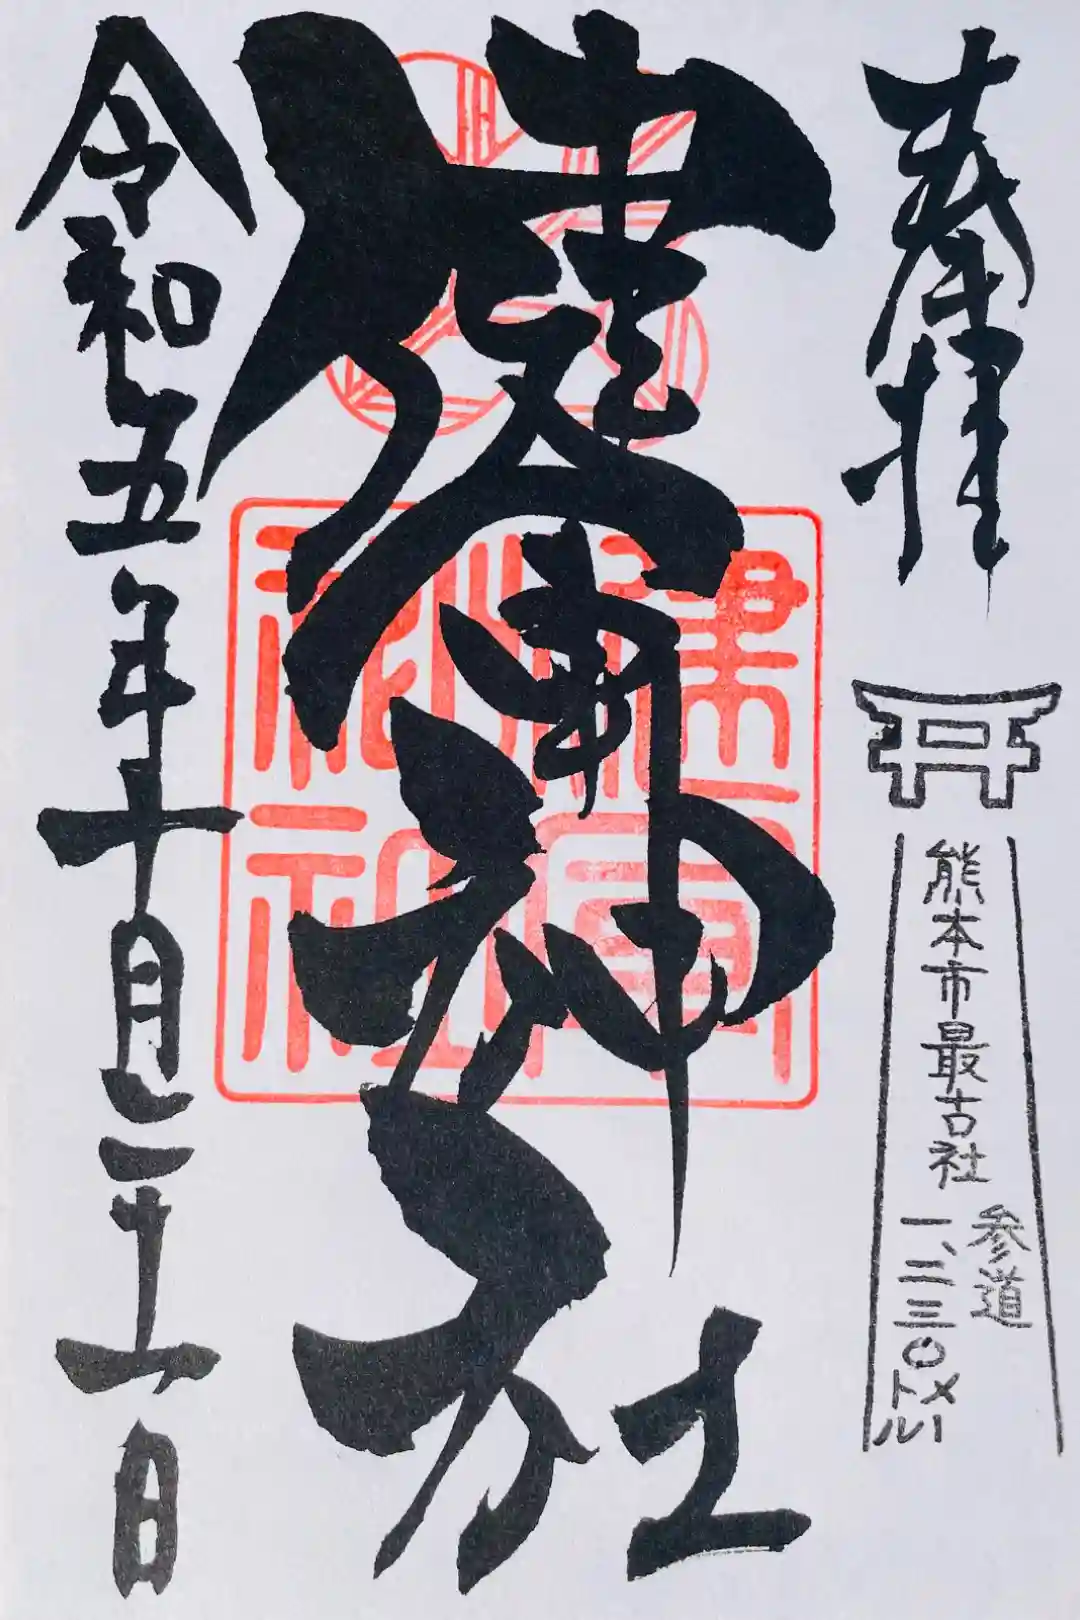 奉拝
熊本市最古社
参道
一、二三〇メートル
健軍神社
健軍
神社
令和五年十月二十一日